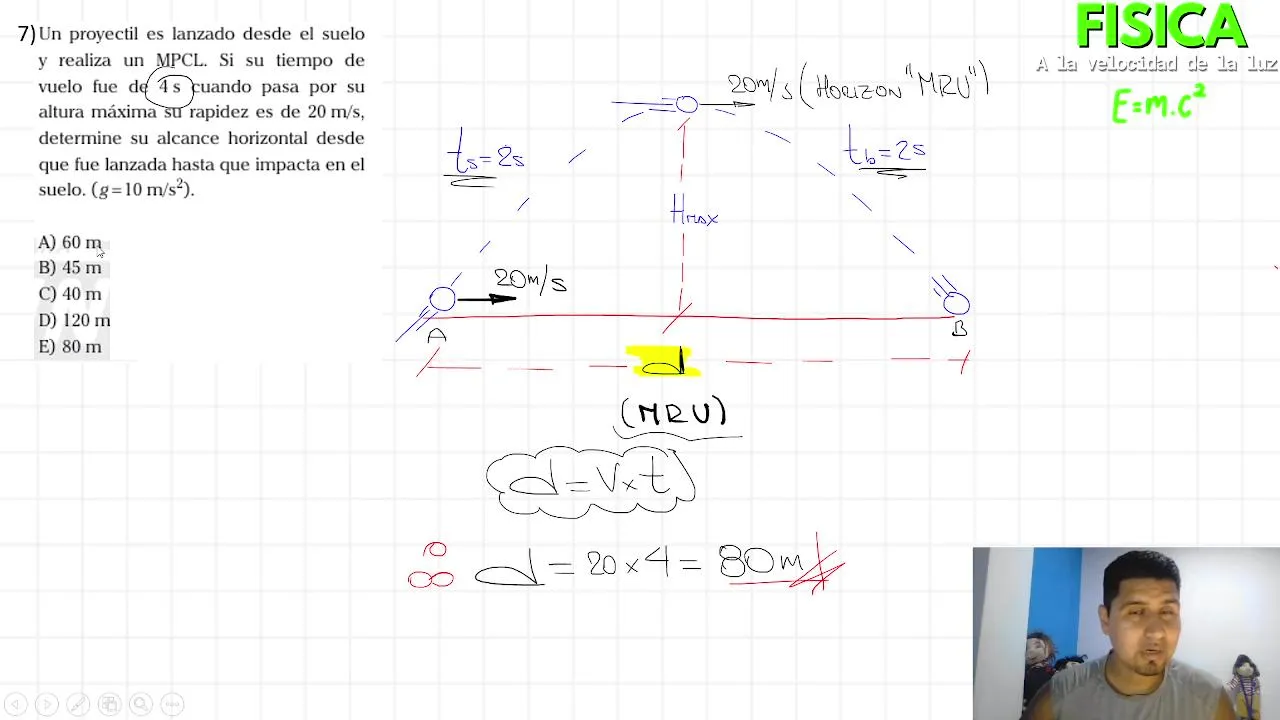 7) Un proyectil es lanzado desde el suelo
y realiza un MPCL. Si su tiempo de
vuelo fue de 4 s cuando pasa por su
altura máxima su rapidez es de 20 m/s,
determine su alcance horizontal desde
que fue lanzada hasta que impacta en el
suelo. (g=10 m/s²).
A) 60 m
B) 45 m
C) 40 m
D) 120 m
E) 80 m
FISICA
A la velocidad de la luz
E=m.c²
20m/s (HORIZON "MRU")
ts=2s
tb=2s
Hmax
20m/s
A
B
d
(MRU)
d=v×t
d=20×4=80m